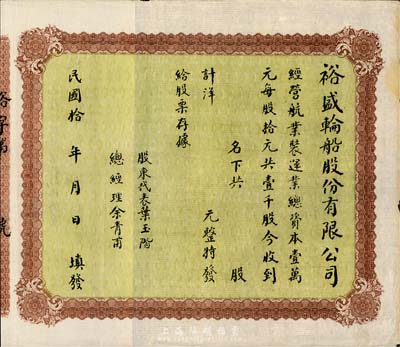 裕盛輪船股份有限公司
經營航業裝運業總資本壹萬
元每股拾元共壹千股今收到
名下共 股
計洋 元整特發
給股票存據
股東代表葉玉階
總經理余青甫
民國拾 年 月 日 填發
號